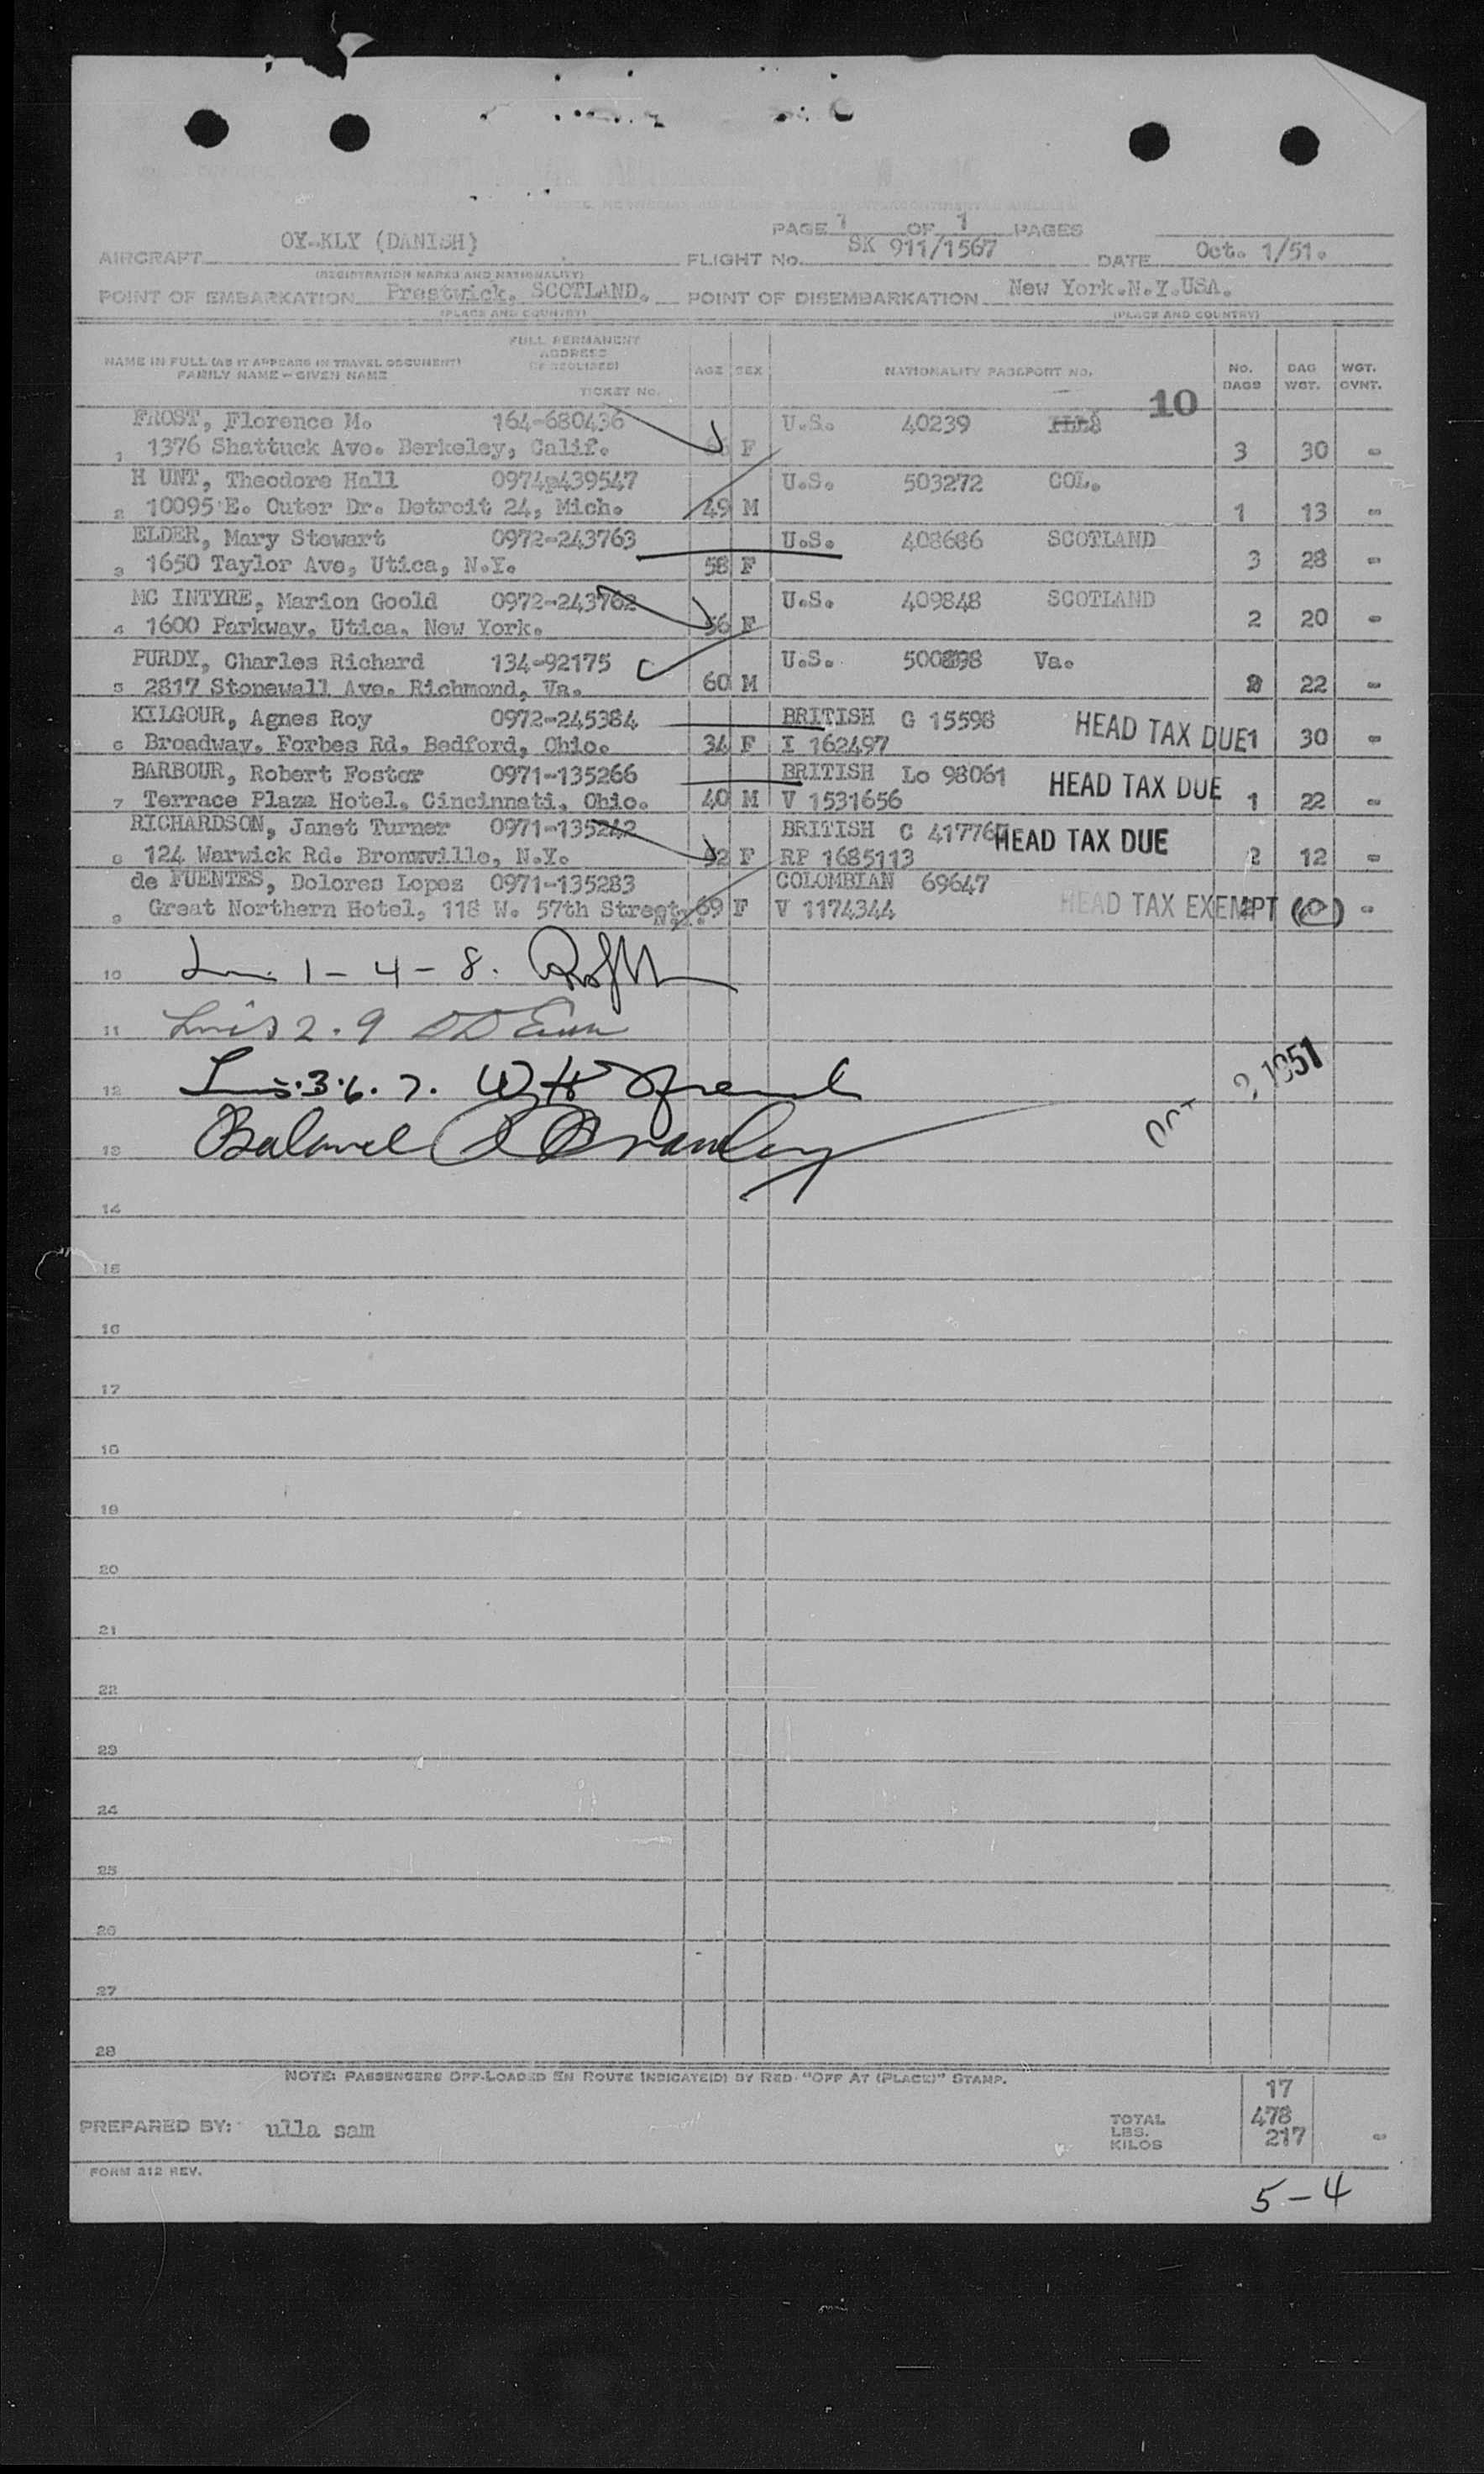 PAGE 1 OF 1 PAGES
AIRCRAFT OY-KLY (DANISH) FLIGHT NO. SK 911/1567 DATE Oct. 1/51.
(REGISTRATION MARKS AND NATIONALITY)
POINT OF EMBARKATION Prestwick, SCOTLAND. POINT OF DISEMBARKATION New York.N.Y.USA.
(PLACE AND COUNTRY) (PLACE AND COUNTRY)
NAME IN FULL (AS IT APPEARS IN TRAVEL DOCUMENT) FAMILY NAME - GIVEN NAME FULL PERMANENT ADDRESS (IF REQUIRED) TICKET NO. AGE SEX NATIONALITY PASSPORT NO. NO. BAGS BAG WGT. WGT. OVNT.
10
FROST, Florence M. 164-680436 U.S. 40239
1 1376 Shattuck Ave. Berkeley, Calif. F 3 30 -
H UNT, Theodore Hall 0974p439547 U.S. 503272 COL.
2 10095 E. Outer Dr. Detroit 24, Mich. 49 M 1 13 -
ELDER, Mary Stewart 0972-243763 U.S. 408686 SCOTLAND
3 1650 Taylor Ave, Utica, N.Y. 58 F 3 28 -
MC INTYRE, Marion Goold 0972-243762 U.S. 409848 SCOTLAND
4 1600 Parkway, Utica, New York. 56 F 2 20 -
PURDY, Charles Richard 134-92175 U.S. 500898 Va.
5 2817 Stonewall Ave. Richmond, Va. 60 M 22 -
KILGOUR, Agnes Roy 0972-245384 BRITISH G 15598 HEAD TAX DUE
6 Broadway, Forbes Rd, Bedford, Ohio. 34 F I 162497 1 30 -
BARBOUR, Robert Foster 0971-135266 BRITISH Lo 98061 HEAD TAX DUE
7 Terrace Plaza Hotel, Cincinnati, Ohio. 40 M V 1531656 1 22 -
RICHARDSON, Janet Turner 0971-135242 BRITISH C 41776 HEAD TAX DUE
8 124 Warwick Rd. Bronxville, N.Y. F RP 1685113 2 12 -
de FUENTES, Dolores Lopez 0971-135283 COLOMBIAN 69647
9 Great Northern Hotel, 118 W. 57th Street, 69 F V 1174344 HEAD TAX EXEMPT -
10 1 - 4 - 8.
11 2 . 9
12 3. 6. 7.
OCT 2 1951
13
14
15
16
17
18
19
20
21
22
23
24
25
26
27
28
NOTE: PASSENGERS OFF-LOADED EN ROUTE INDICATE(D) BY RED "OFF AT (PLACE)" STAMP.
17
PREPARED BY: ulla sam TOTAL LBS. 478
KILOS 217 -
FORM 212 REV.
5 - 4